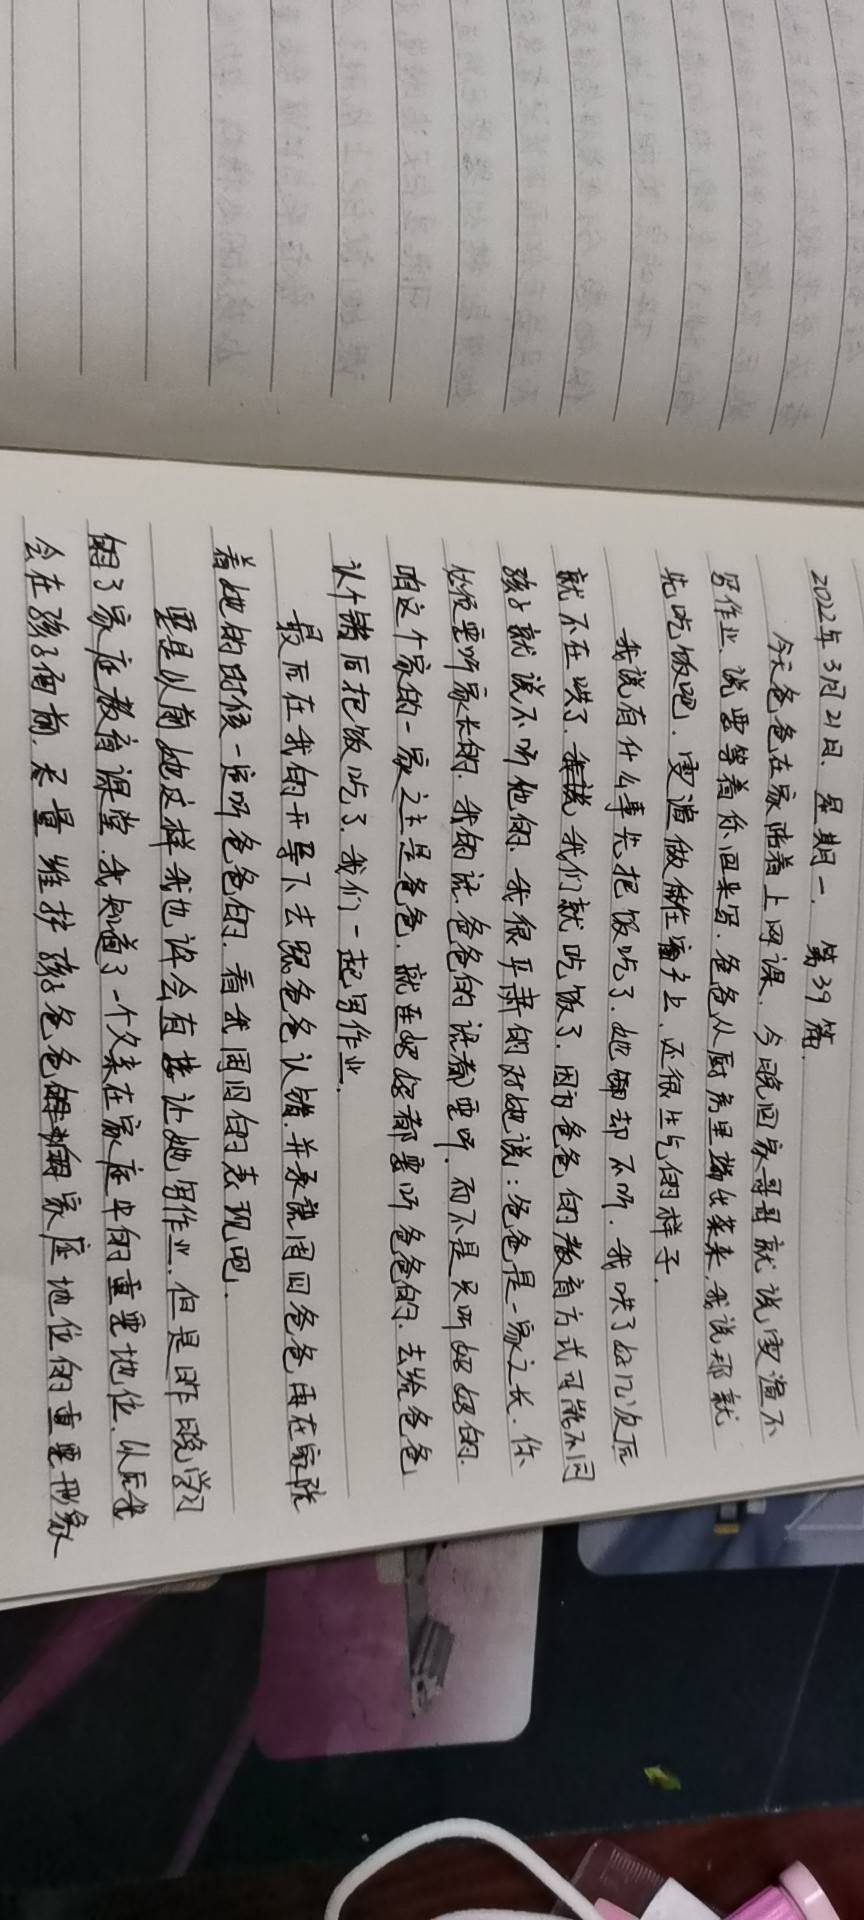 2022年3月21日、星期一、第39篇.
今天爸爸在家陪着上网课、今晚回家哥哥就说雯渲不
写作业、说要等着你回来写.爸爸从厨房里端出菜来,我说那就
先吃饭吧.雯渲做在窗户上,还很生气的样子.
我说有什么事先把饭吃了.她却不听.我哄了好几次后
就不在哄了.我们就吃饭了.因为爸爸的教育方式可能不同
孩子就说不听他的.我很平肃的对她说:爸爸是一家之长.你
必须要听家长的.我的话.爸爸的话都要听.而不是只听妈妈的.
咱这个家的一家之主是爸爸.就连妈妈都要听爸爸的.去给爸爸
认个错后把饭吃了.我们一起写作业.
最后在我的开导下去跟爸爸认错.并承诺周四爸爸再在家陪
着她的时候一定听爸爸的.看我周四的表现吧.
要是以前她这样我也许会直接让她写作业.但是昨晚学习
了家庭教育课堂.我知道了一个父亲在家庭中的重要地位.以后我
会在孩子面前.尽量维护孩子爸爸家庭地位的重要形象